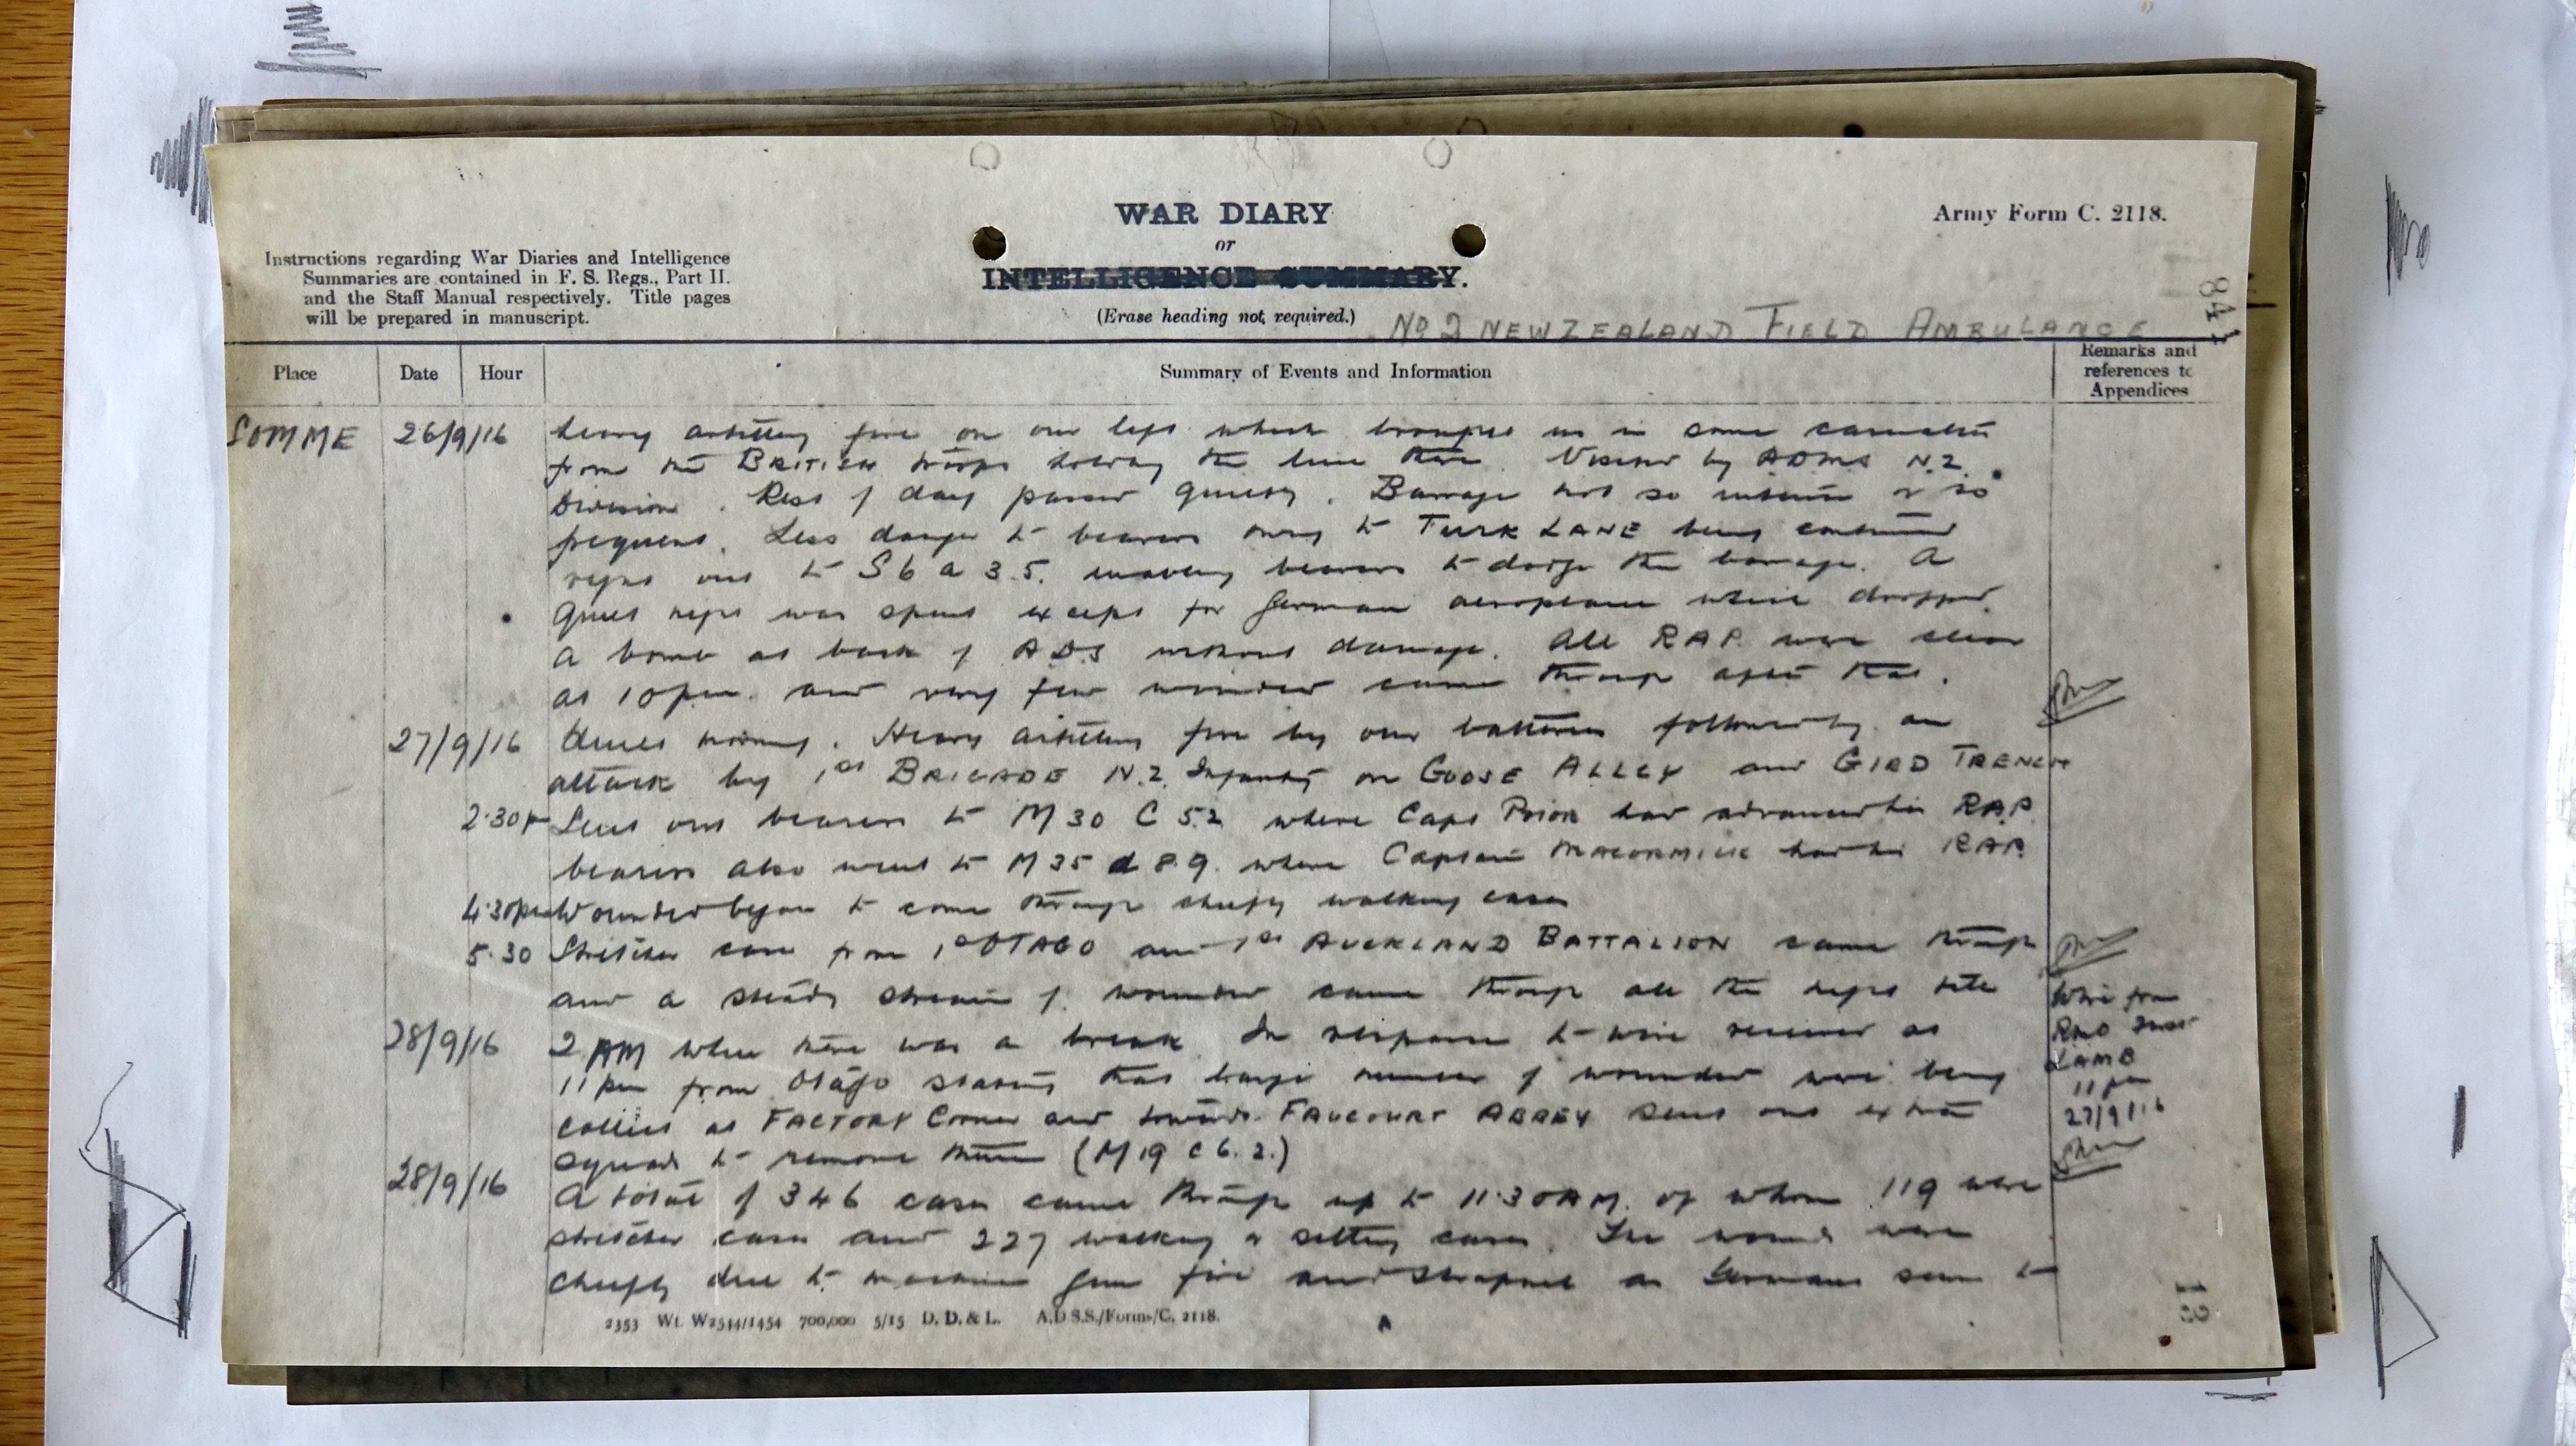 WAR DIARY
or
INTELLIGENCE SUMMARY.
(Erase heading not required.)
Army Form C. 2118.
Instructions regarding War Diaries and Intelligence
Summaries are contained in F. S. Regs., Part II.
and the Staff Manual respectively. Title pages
will be prepared in manuscript.
No 2 NEW ZEALAND FIELD AMBULANCE
841
Place Date Hour Summary of Events and Information Remarks and references to Appendices
SOMME 26/9/16 heavy artillery fire on our left which brought us in some casualties
from the BRITISH troops holding the line there. Visited by ADMS N.Z.
Division. Rest of day passed quietly. Barrage not so intense or so
frequent. Less danger to bearers owing to TURK LANE being continued
right out to S6 a 3.5. enabling bearers to dodge the barrage. A
quiet night was spent except for German aeroplane which dropped
a bomb at back of ADS without damage. All RAP. were clear
at 10 pm. and very few wounded came through after that.
27/9/16 Quiet morning. Heavy artillery fire by our batteries followed by an
attack by 1st BRIGADE N.Z. Infantry on GOOSE ALLEY and GIRD TRENCH
2.30 p Sent out bearers to M 30 C 5.2 where Capt Prior had advanced his RAP.
bearers also went to M 35 d 8.9. where Captain MACORMICK had his RAP.
4.30pm Wounded began to come through chiefly walking cases
5.30 Stretcher cases from 1st OTAGO and 1st AUCKLAND BATTALION came through
and a steady stream of wounded came through all the night till
28/9/16 2 AM when there was a break. In response to wire received at
11 pm from Otago stating that large number of wounded were being
collected at FACTORY Corner and towards FAUCOURT ABBEY sent out extra
squads to remove them (M 19 c 6. 2.)
28/9/16 A total of 346 cases came through up to 11.30 AM. of whom 119 were
stretcher cases and 227 walking or sitting cases. The wounds were
chiefly due to machine gun fire and shrapnel as Germans seem to
Wire from
RMO
LAMB
11 pm
27/9/16
2353 Wt. W2544/1454 700,000 5/15 D. D. & L. A.D.S.S./Forms/C. 2118.
13